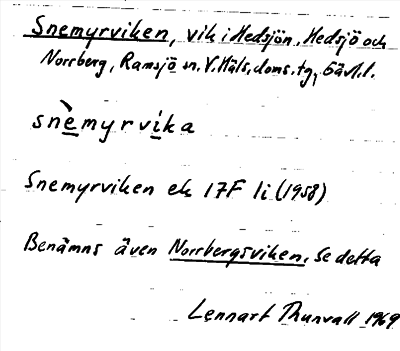 Snemyrviken, vik i Hedsjön, Hedsjö och
Norrberg, Ramsjö sn. V. Häls. doms. tg, Gävl. l.
snèmyrvika
Snemyrviken ek 17F 1i (1958)
Benämns även Norrbergsviken, se detta
Lennart Thunvall 1969